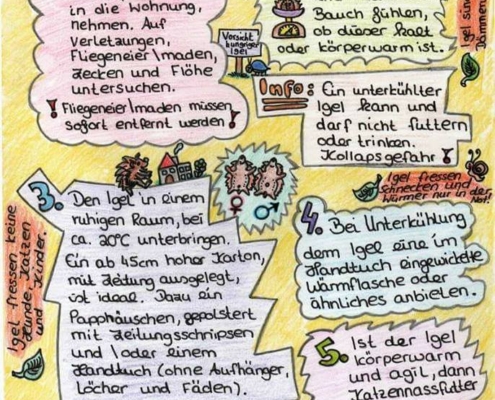 in die Wohnung,
nehmen. Auf
Verletzungen,
Fliegeneier\maden,
Zecken und Flöhe
untersuchen.
! Fliegeneier\maden müssen
sofort entfernt werden !
Vorsicht
hungriger
Igel
Bauch fühlen,
ob dieser kalt
oder körperwarm ist.
Igel sind
Info: Ein unterkühlter
Igel kann und
darf nicht futtern
oder trinken.
Kollapsgefahr !
Igel fressen
Schnecken und
Würmer nur in der
Not!
Igel fressen keine
Hunde, Katzen
und Kinder.
3. Den Igel in einem
ruhigen Raum, bei
ca. 20°C unterbringen.
Ein ab 45cm hoher Karton,
mit Zeitung ausgelegt,
ist ideal. Dazu ein
Papphäuschen, gepolstert
mit Zeitungsschnipsen
und \ oder einem
Handtuch (ohne Aufhänger,
Löcher und Fäden).
4. Bei Unterkühlung
dem Igel eine im
Handtuch eingewickelte
Wärmflasche oder
ähnliches anbieten.
5. Ist der Igel
körperwarm
und agil, dann
Katzennassfutter